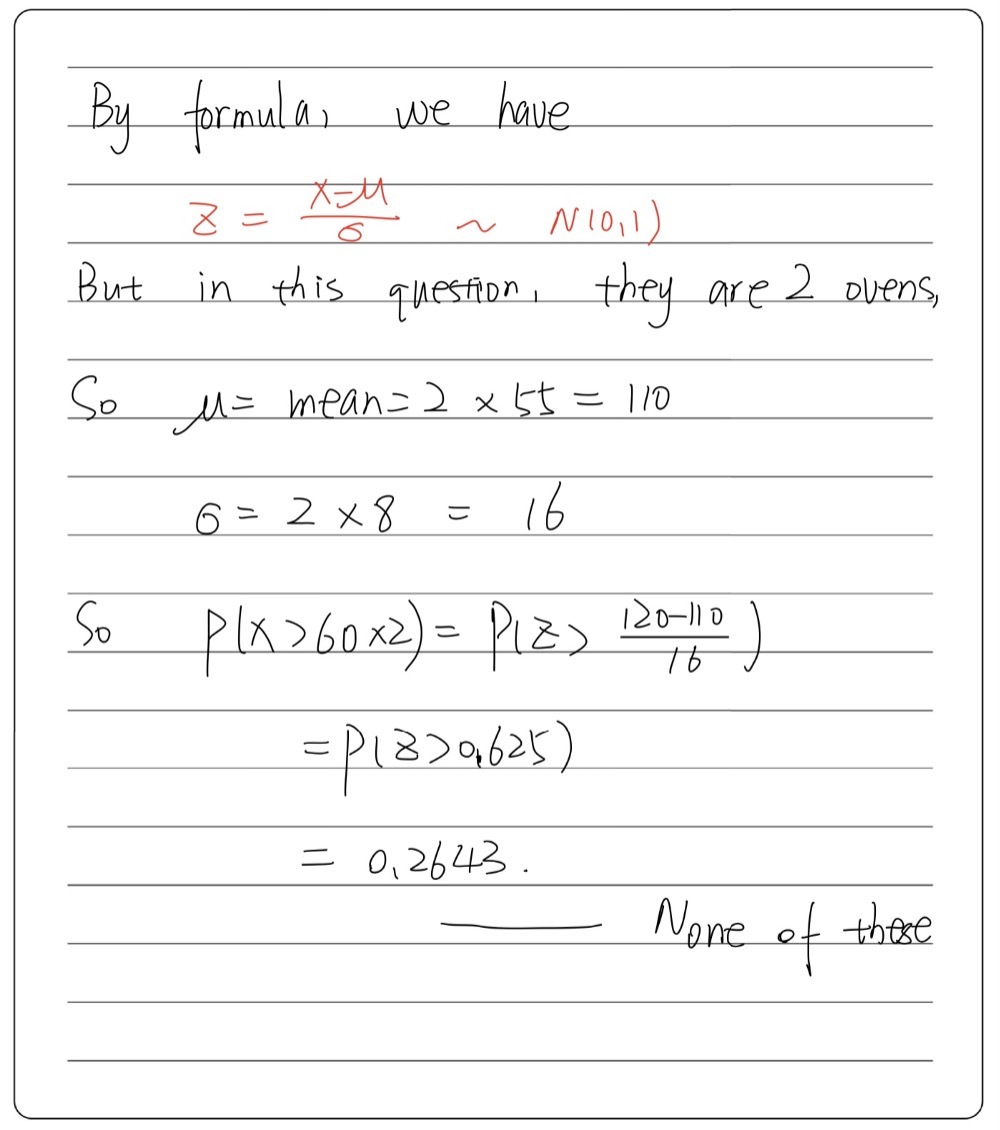 By formula, we have
Z = (X-μ)/σ ~ N(0,1)
But in this question, they are 2 ovens,
So μ = mean = 2 × 55 = 110
σ = 2 × 8 = 16
So P(X > 60×2) = P(Z > (120-110)/16)
= P(Z > 0.625)
= 0.2643.
—— None of these